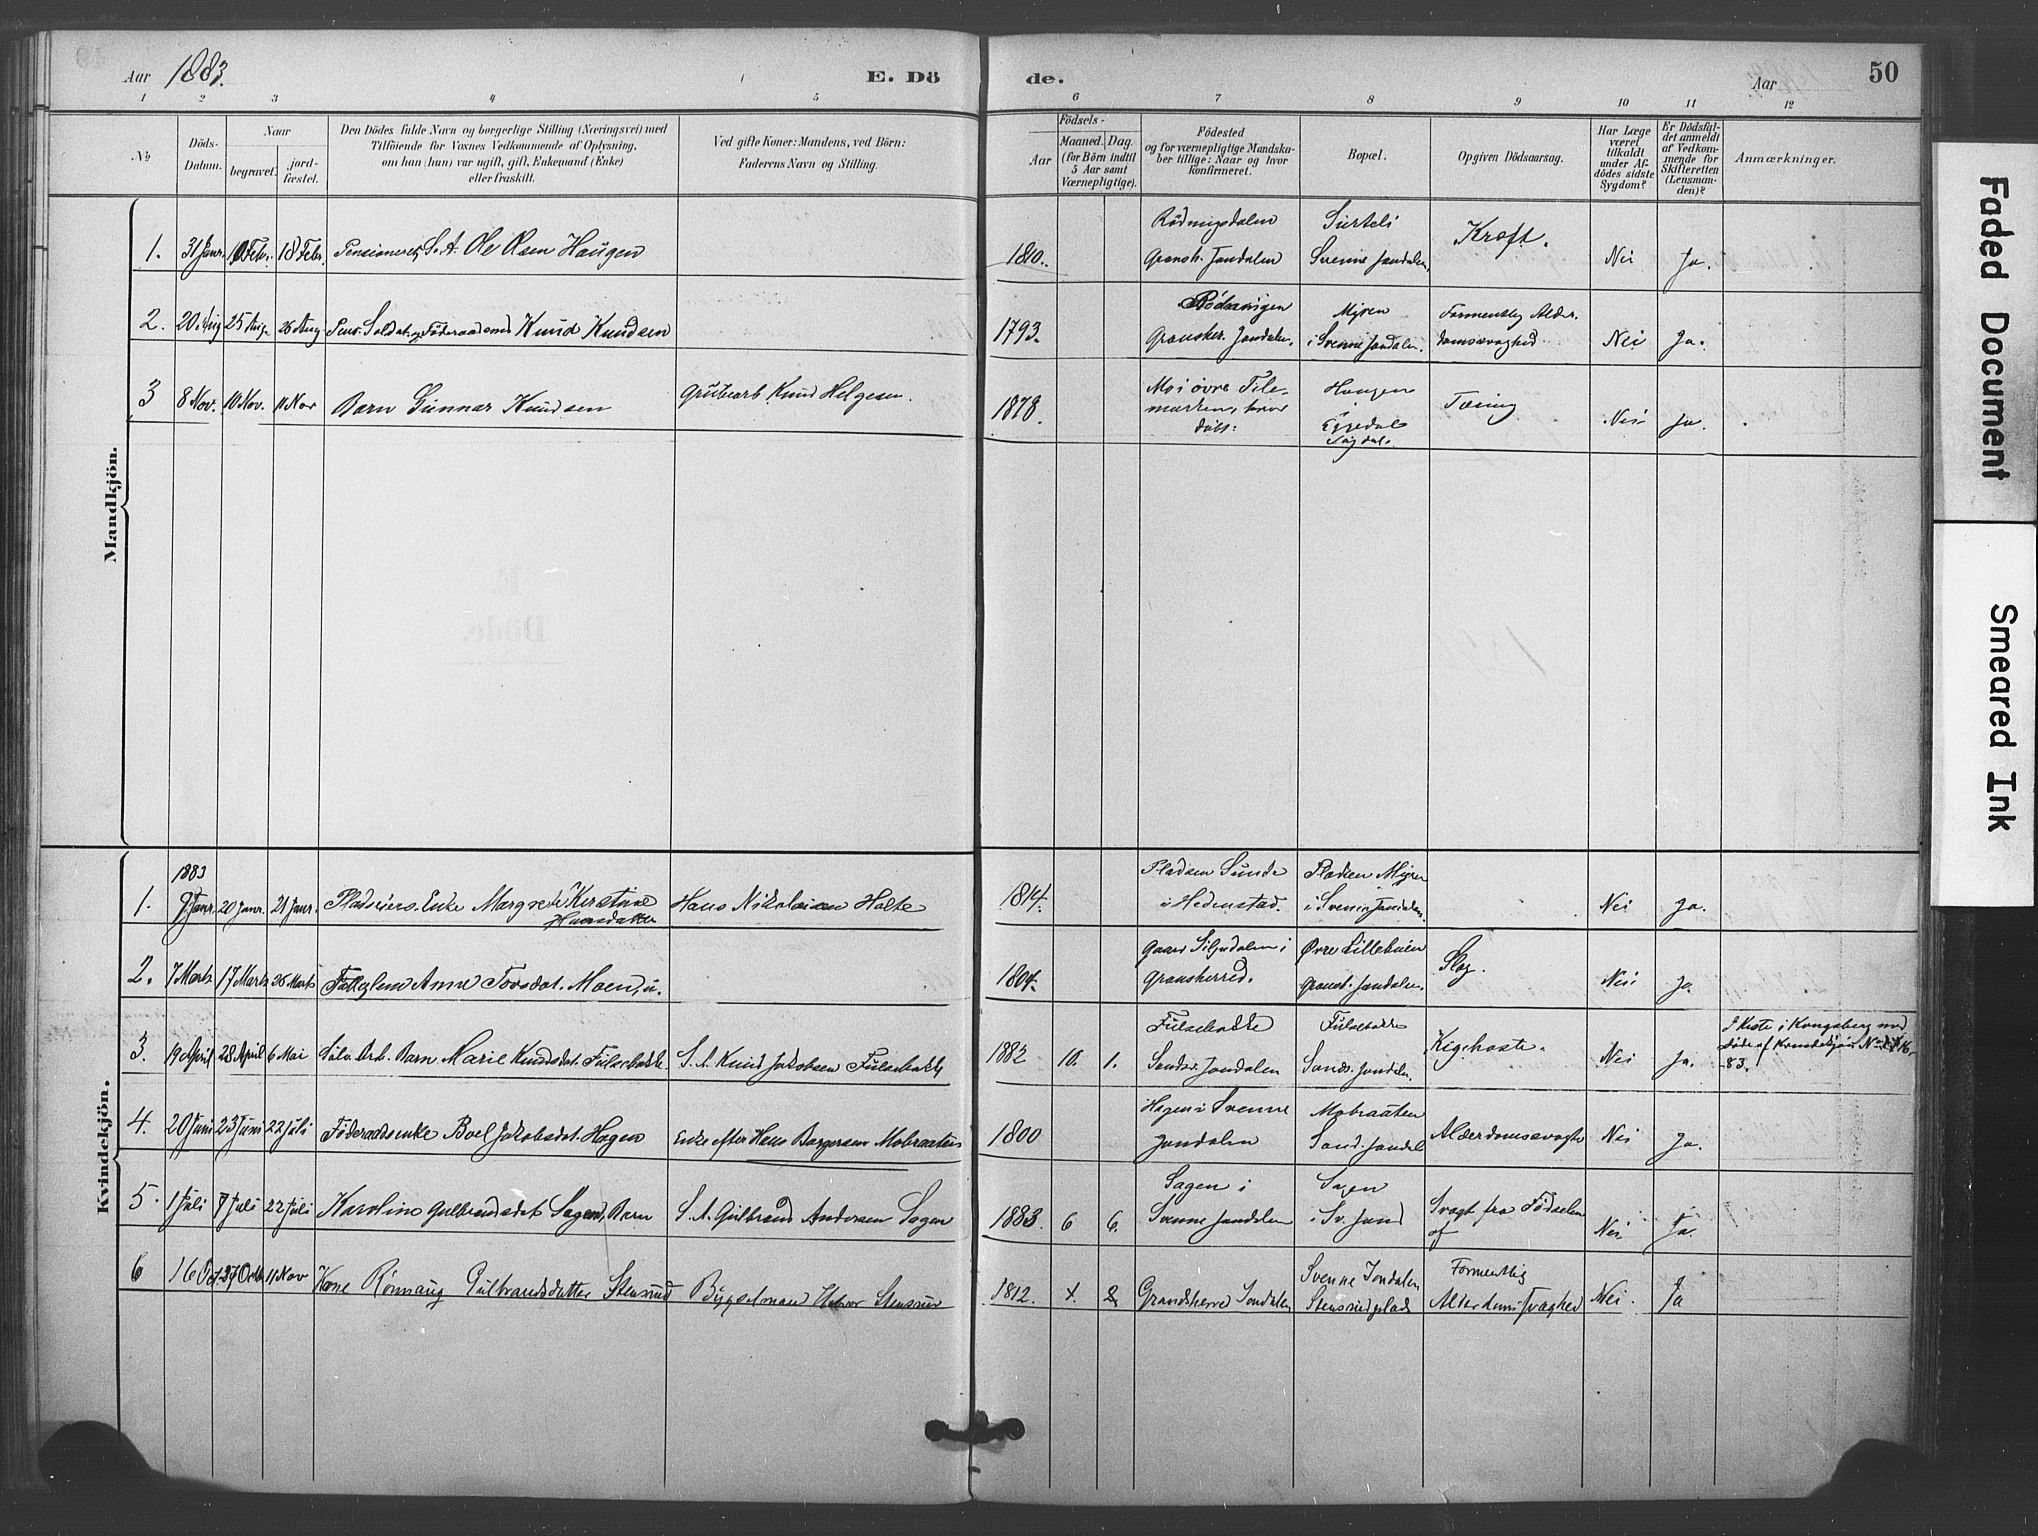 Aar 1883.
E. Dö
de.
Aar
50
1 2 3 4 5 6 7 8 9 10 11 12
No
Döds-
Datum.
Naar
begravet.
jord-
fæstet.
Den Dödes fulde Navn og borgerlige Stilling (Næringsvei) med
Tilföiende for Voxnes Vedkommende af Oplysning,
om han (hun) var ugift, gift, Enkemand (Enke)
eller fraskilt.
Ved gifte Koner: Mandens, ved Börn:
Faderens Navn og Stilling.
Födsels-
Aar
Maaned.
Dag.
(for Börn indtil
5 Aar samt
Værnepligtige).
Födested
og for værnepligtige Mandska-
ber tillige: Naar og hvor
konfirmeret.
Bopæl.
Opgiven Dödsaarsag.
Har Læge
været
tilkaldt
under Af-
dödes sidste
Sygdom?
Er Dödsfal-
det anmeldt
af Vedkom-
mende for
Skifteretten
(Lensman-
den)?
Anmærkninger.
Mandkjön.
1. 31 Janr. Febr. 18 Febr. Pensioneret S. A. Ole Olsen Haugen 1810. Gransh. Jondalen Svenne Jondalen, Kræft. Nei Ja.
2. 20 Aug 25 Aug. 26 Aug Pens. Soldat og Föderaadsmd Knud Knudsen 1793. Gransher. Jondalen. Myren i Svenne Jondalen. Formentlig Alder-
domssvaghed Nei Ja.
3 8 Nov. 10 Nov. 11 Nov Barn Gunnar Knudsen Grubearb. Knud Helgesen. 1878. Mo i övre Tele-
marken, hvor
döbt. Haugen
i
Eggedal
Sigdal. Tæring Nei Ja.
Kvindekjön.
1883
1. Janr. 20 Janr. 21 Janr. Pladseiers Enke Margrete Kirstine
Hansdatter Hans Nikolaisen Holte 1814. Pladsen Sunde
i Hedenstad. Pladsen Myren
i Svenne Jondalen. Nei Ja.
2. 7 Marts 17 Marts 26 Marts Anne Tovsdat. Moen, u. 1804. Gaard Siljudalen i
Gransherred. Övre Lillebuien
Gransh. Jondalen. Slag. Nei Ja.
3. 19 April 28 April 6 Mai Sölv. Arb. Barn Marie Knudsdat. Fulsebakke S. A. Knud Jakobsen Fulsebakke 1882 10. 1. Fulsebakke
Sandsv. Jondalen Fulsebakke
Sands. Jondalen. Kighoste. Nei Ja. I Kiste i Kongsberg med
döde af Kvindekjön No 16
83.
4. 20 Juni 23 Juni 22 Juli Föderaadsenke Boel Jakobsdat. Hagen Enke efter Hans Borgersen Mobraaten 1800 Hagen i Svenne
Jondalen Mobraaten
Sand. Jondal Alderdomssvaghe Nei Ja.
5. 1 Juli 7 Juli 22 Juli Karoline Gulbrandsdat. Sagen, Barn S. A. Gulbrand Andersen Sagen 1883. 6 6. Sagen i
Svenne Jondalen Sagen
i Sv. Jond Svagt fra Födselen
af Nei Ja.
6 16 Oct 27 Octb 11 Nov Kone Rönnaug Gulbrandsdatter Stensrud Bygselmand Halvor Stensrud 1812. Grandsherred Jondalen Svenne Jondalen
Stensrudplads Formentlig
Alderdoms Svaghed Nei. Ja
Faded Document
Smeared Ink